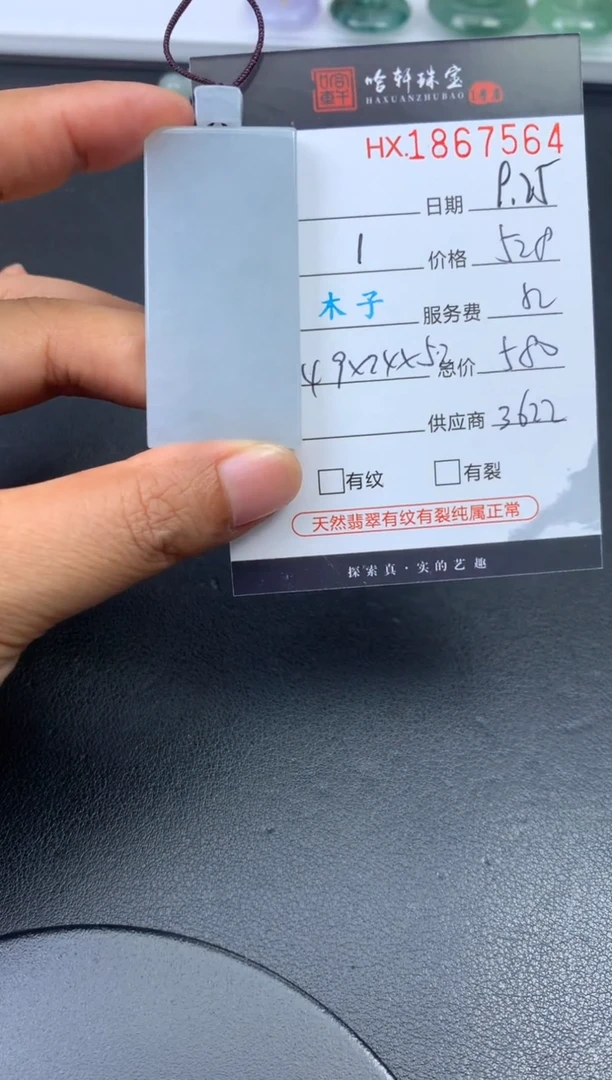 哈轩珠宝
HAXUANZHUBAO
HX.1867564
日期
1 价格 528
木子 服务费 52
49x24x5.2 总价 580
供应商 3622
有纹 有裂
天然翡翠有纹有裂纯属正常
探索真·实的艺趣